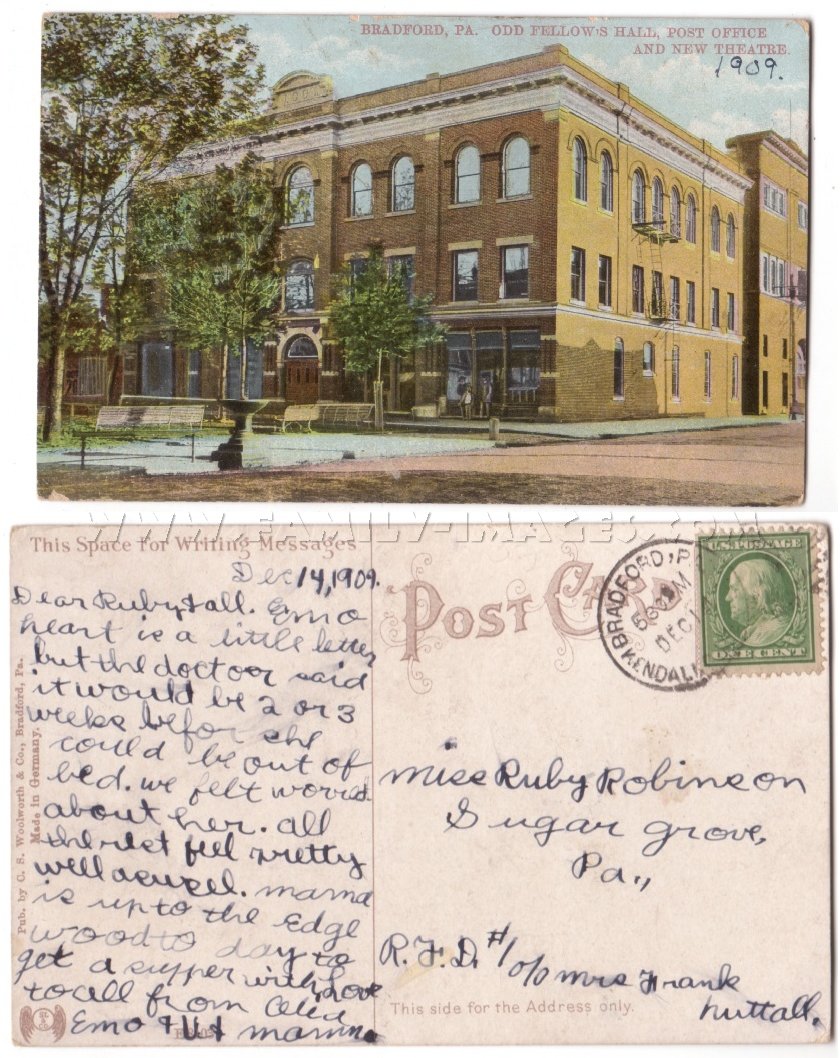 BRADFORD, PA. ODD FELLOW'S HALL, POST OFFICE
AND NEW THEATRE.
1909.
WWW.FAMILY-IMAGES.COM
This Space for Writing Messages
Dec 14, 1909.
Dear Ruby & all. Emo
heart is a little letter
but the doctoer said
it would be 2 or 3
weeks befor she
could be out of
bed. we felt worred
about her. all
the rest feel pretty
well as usel. mama
is up to the Edge
wood to day to
get a supper with Love
to all from
Emo mamma
Pub. by C. S. Woolworth & Co., Bradford, Pa.
Made in Germany.
POST CARD
BRADFORD, P
5
DEC 1
KENDALL
U.S. POSTAGE
ONE CENT
Miss Ruby Robinson
Sugar grove,
Pa.,
R.F.D. #1
c/o Mrs Frank
nuttall.
This side for the Address only.